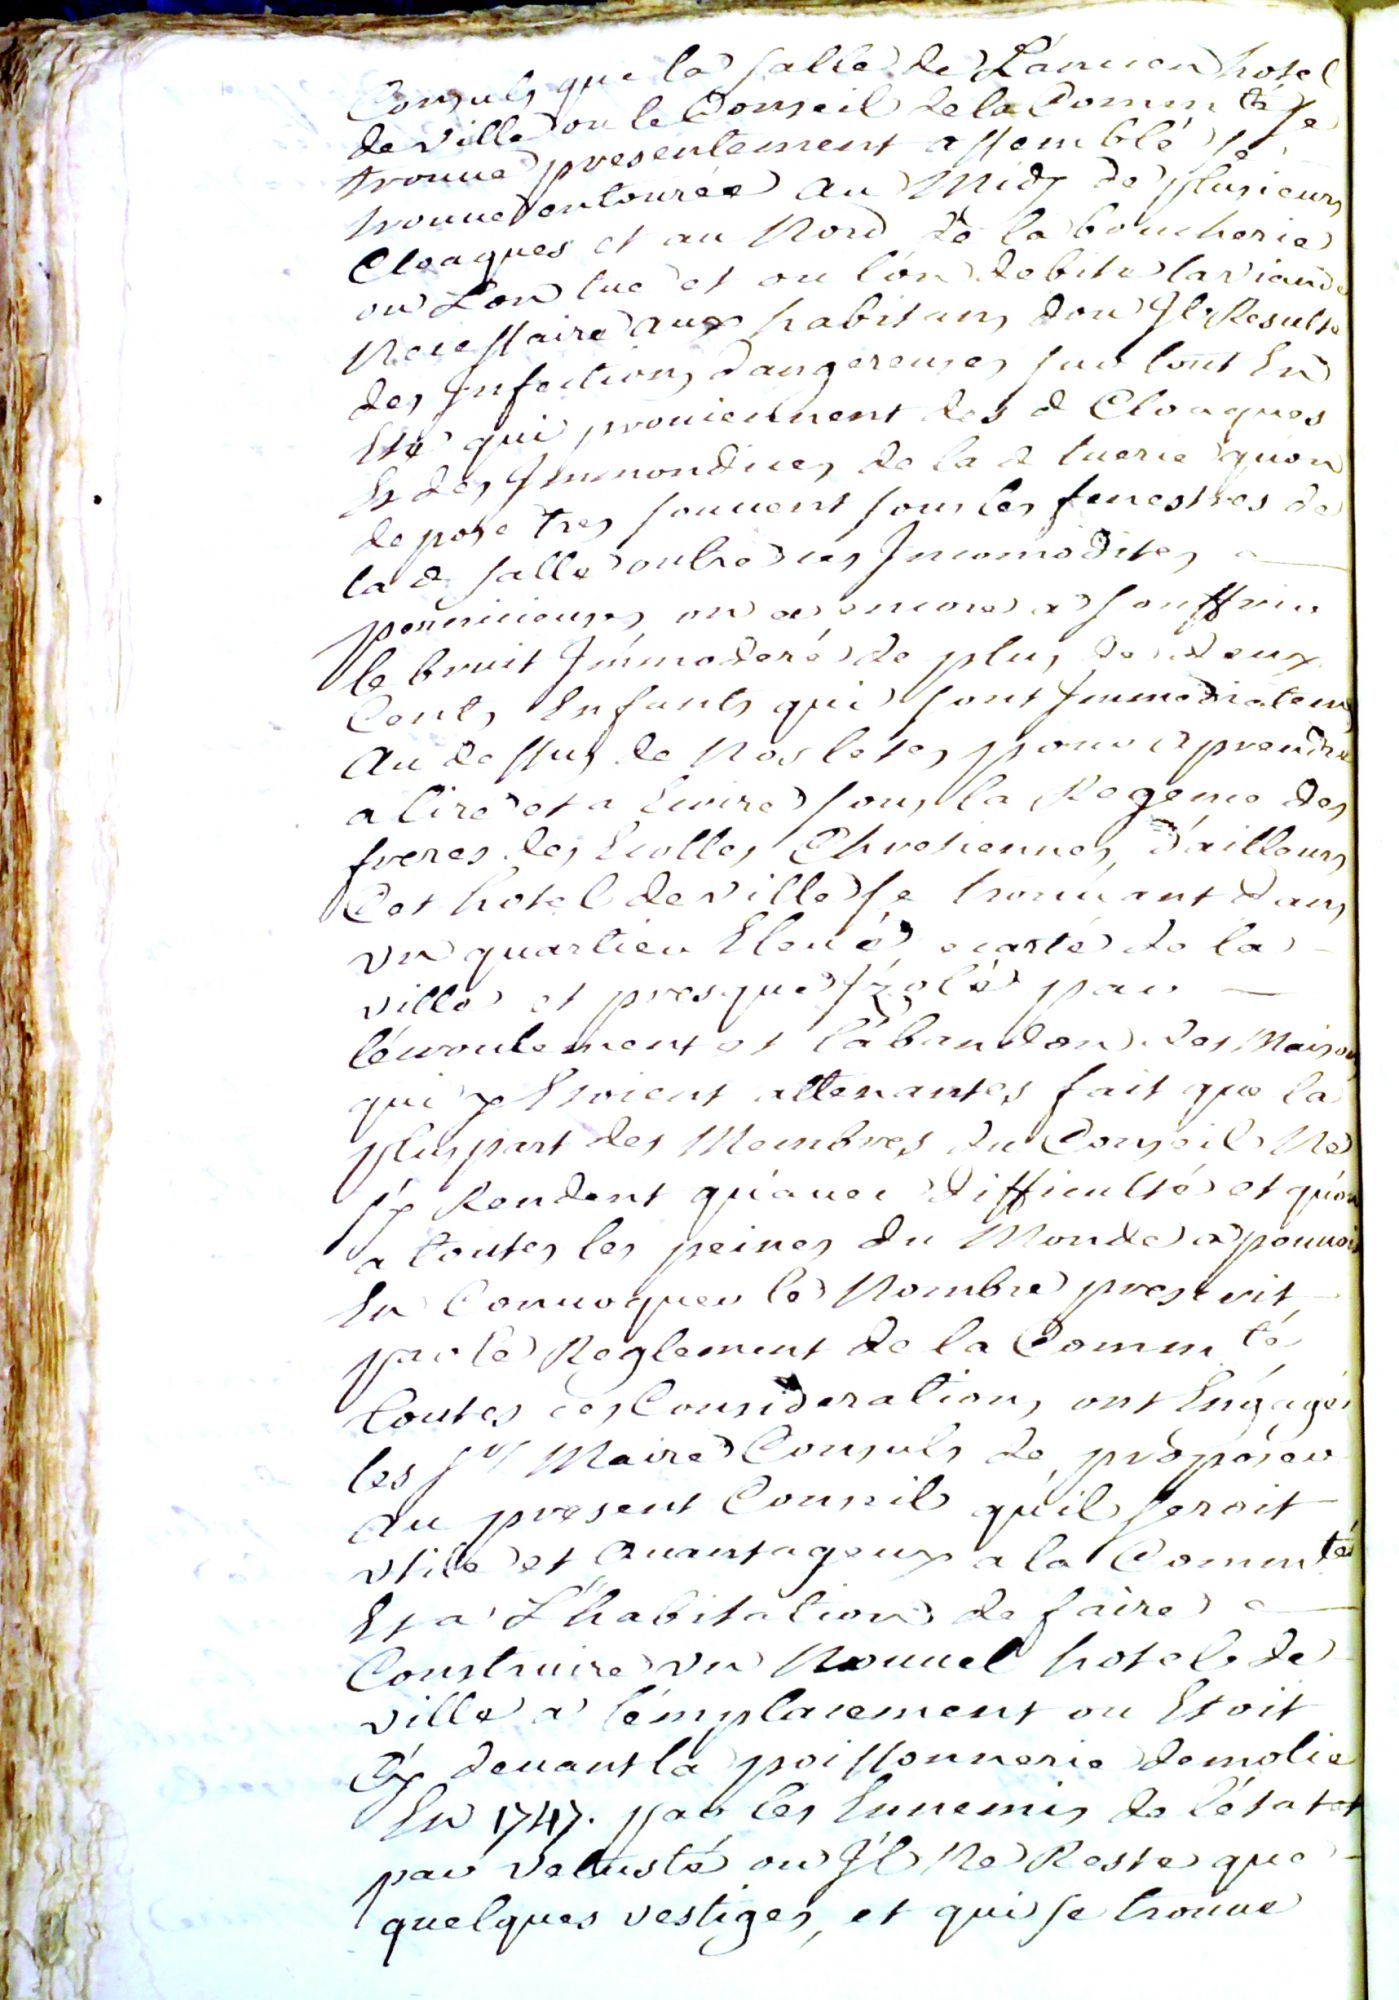 Consuls que la salle de L'ancien hotel
de ville ou le Conseil de la Commté se
trouve presentement assemblé se
trouve entourée au Midy de plusieurs
Cloaques et au Nord de la boucherie
ou L'on tue et ou l'on debite la viande
Necessaire aux habitans, dou Il Resulte
des Infections dangereuses sur tout En
Eté qui proviennent des d Cloaques
Et des Immondices de la d tuerie qu'on
depose tres souvent sous les fenestres de
la d salle outre ces Incomodites
pernicieuses on a encore a souffrir
le bruit Immoderé de plus de deux
Cents Enfants qui sont Immediatemt
Au dessus de Nos tetes pour aprendre
a lire et a Ecrire sous la Regence des
freres des Ecolles Chretiennes, d'ailleurs
Cet hotel de ville se trouvant dans
vn quartier Elevé ecarté de la
ville et presque Izolé par
l'ecroulement et l'abandon des Maisons
qui y Etoient attenantes fait que la
pluspart des Membres du Conseil Ne
s'y Rendent qu'avec difficulté et qu'on
a toutes les peines du Monde a pouvoir
En Convoquer le Nombre prescrit
par le Reglement de la Commté
toutes ces Considerations ont Engagé
les srs Maire Consuls de proposer
Au present Conseil qu'il seroit
vtile et Avantageux a la Commté
Et a L'habitation de faire
Construire vn Nouvel hotel de
ville a l'emplacement ou Etoit
Cy devant la poissonnerie demolie
En 1747. par les Ennemis de l'état et
par vetusté ou Il Ne Reste que
quelques vestiges, et qui se trouve